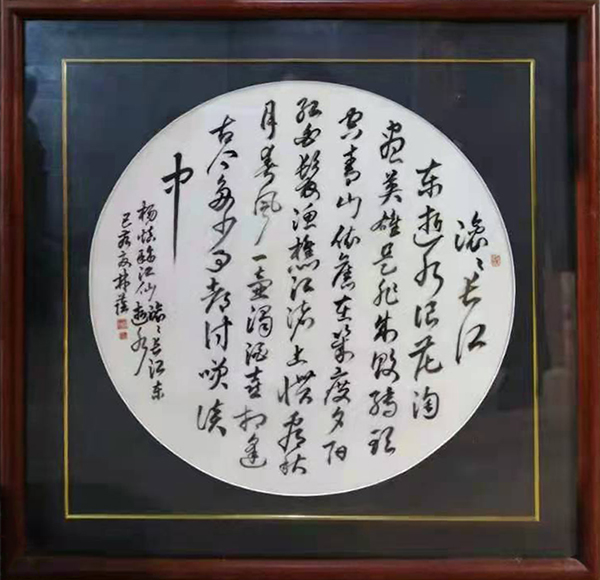 滚滚长江
东逝水浪花淘
尽英雄是非成败转头
空青山依舊在几度夕阳
红白髮渔樵江渚上惯看秋
月春風一壶濁酒喜相逢
古今多少事都付笑谈
中
杨慎临江仙滚滚长江东
逝水
己亥